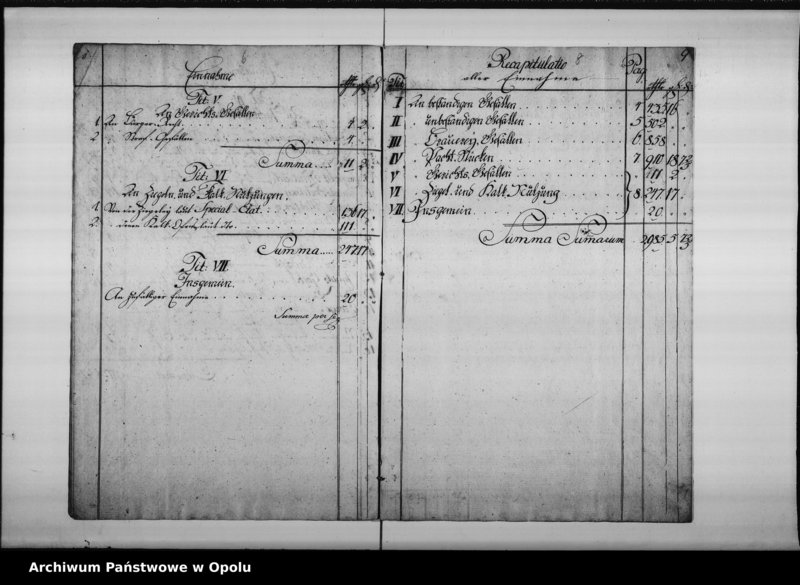 Einnahme
Tit. V.
An Gerichts-Gefällen
1 An Bürger-Recht 4 2
2 Straf-Gefällen 7
Summa 11 2
Tit. VI.
An Ziegel- und Kalk-Nutzungen.
1 Von der Ziegeley laut Special Etat 136 17
2 deren Kalk-Ofen laut dto 111
Summa 247 17
Tit. VII.
Insgemein.
An zufälliger Einnahme 20
Summa per se
Recapitulatio 8
aller Einnahme
Tit. Pag.
I An beständigen Gefällen 4
II unbeständigen Gefällen 5 302
III Brauerey-Gefällen 6 858
IV Pacht-Stücken 7 910 18
V Gerichts-Gefällen 11 2
VI Ziegel- und Kalk-Nutzung 8 247 17
VII Insgemein 20
Summa Sumarum 2985 5
Archiwum Państwowe w Opolu